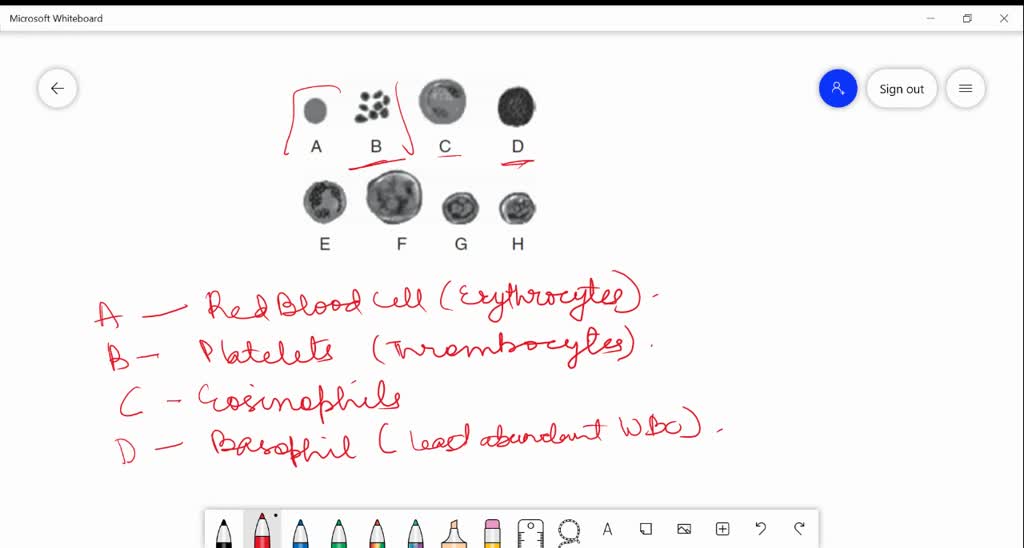 Microsoft Whiteboard
Sign out
A B C D
E F G H
A — Red Blood cell (Erythrocytes).
B — Platelets (Thrombocytes).
C - Eosinophils
D — Basophil (least abundant WBC).
A